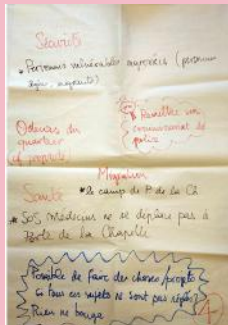 Sécurité
• Personnes vulnérables exposées (personnes
Odeurs du
quartier
propreté
Remettre un
commissariat de
police
Migration
Santé
• le camp de P. de la Ch
• SOS médecins ne se déplace pas à
Porte de la Chapelle
Possible de faire des choses/projets
si tous ces sujets ne sont pas réglés?
Rien ne bouge